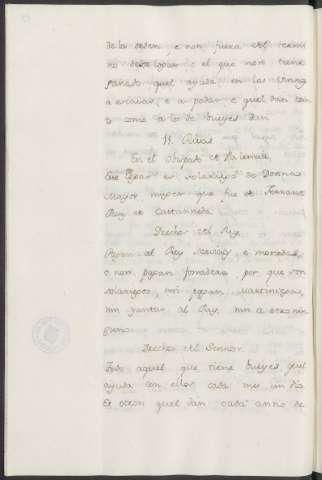 de la orden, e non fuera del termi
no deste logar: e el que non tiene
que l ayuda en las
a e a podar, e quel dan tan
to como a lo de bueyes dan
11. Rivas
En el Obispado de Palencia
este logar es solariego de Donna
Mayor mujer que fue de Fernant
Ruy de Castanneda
Derechos del Rey
Pagan al Rey servicios, e monedas,
e non pagan fonsadera por que son
solariegos, nin pagan martiniega,
nin yantar al Rey, nin a otro nin
guno.
Derechos del Sennor
Todo aquel que tiene bueyes, quel
ayuda con ellos cada mes un dia
Et otrosi quel dan cada anno de